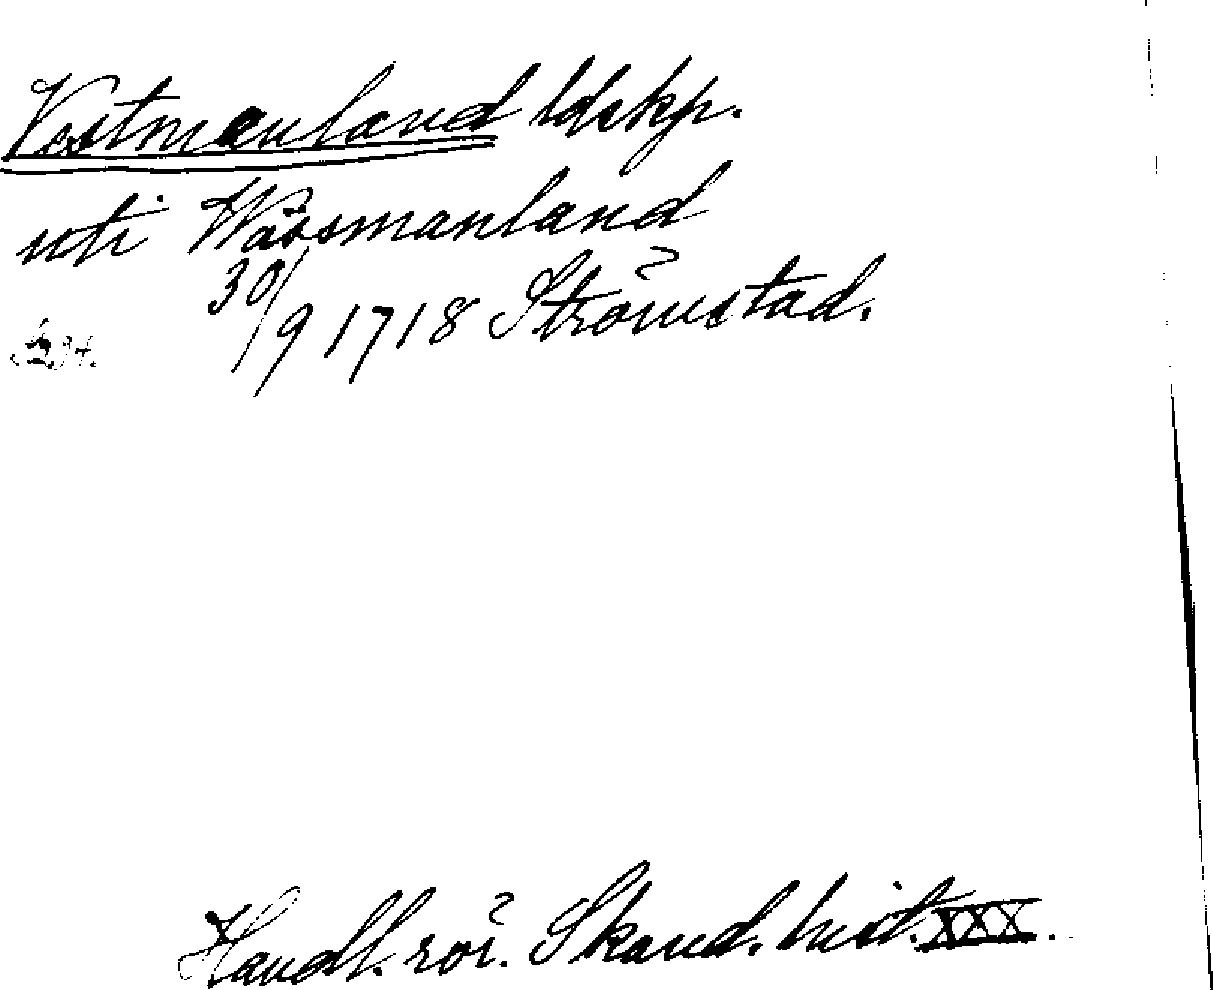 Vestmanland ldskp.
uti Wässmanland
30/9 1718 Strömstad.
Handl. rör. Skand. hist. XXX.